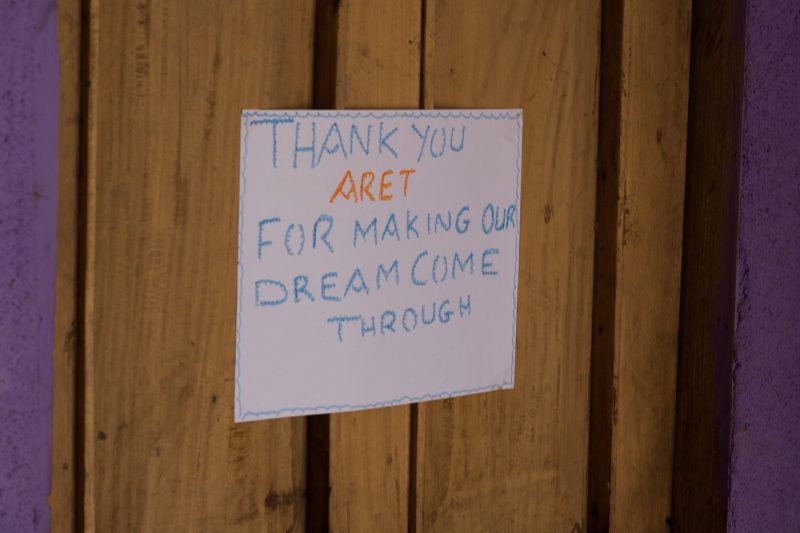 THANK YOU
ARET
FOR MAKING OUR
DREAM COME
THROUGH